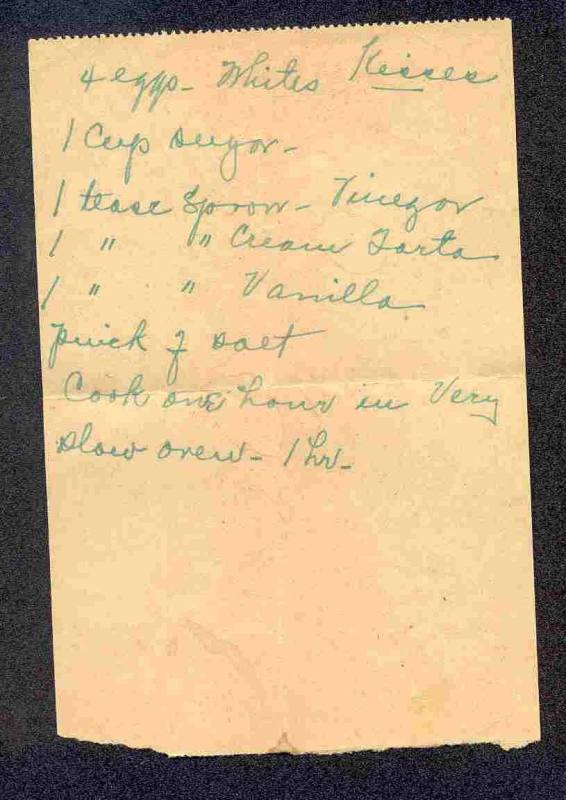 Kisses
4 eggs - Whites
1 Cup sugar -
1 tease Spoon - Vinegar
1 " " Cream Tarta
1 " " Vanilla
pinch of salt
Cook one hour in Very
slow oven - 1 hr -